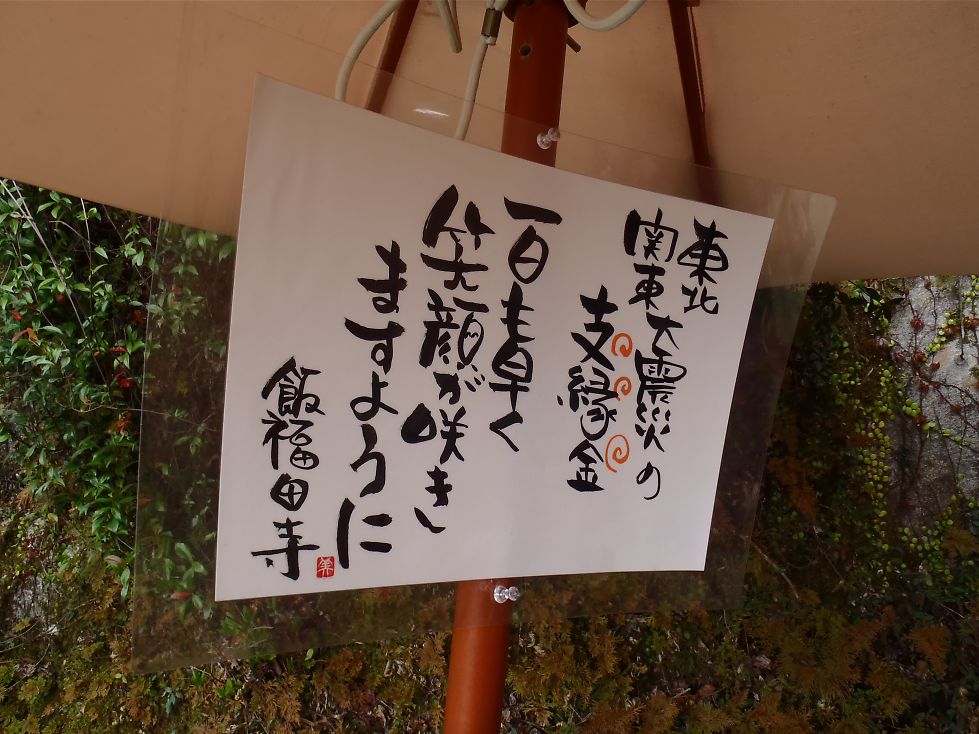 東北
関東大震災の
支縁金
一日も早く
笑顔が咲き
ますように
飯福田寺
美